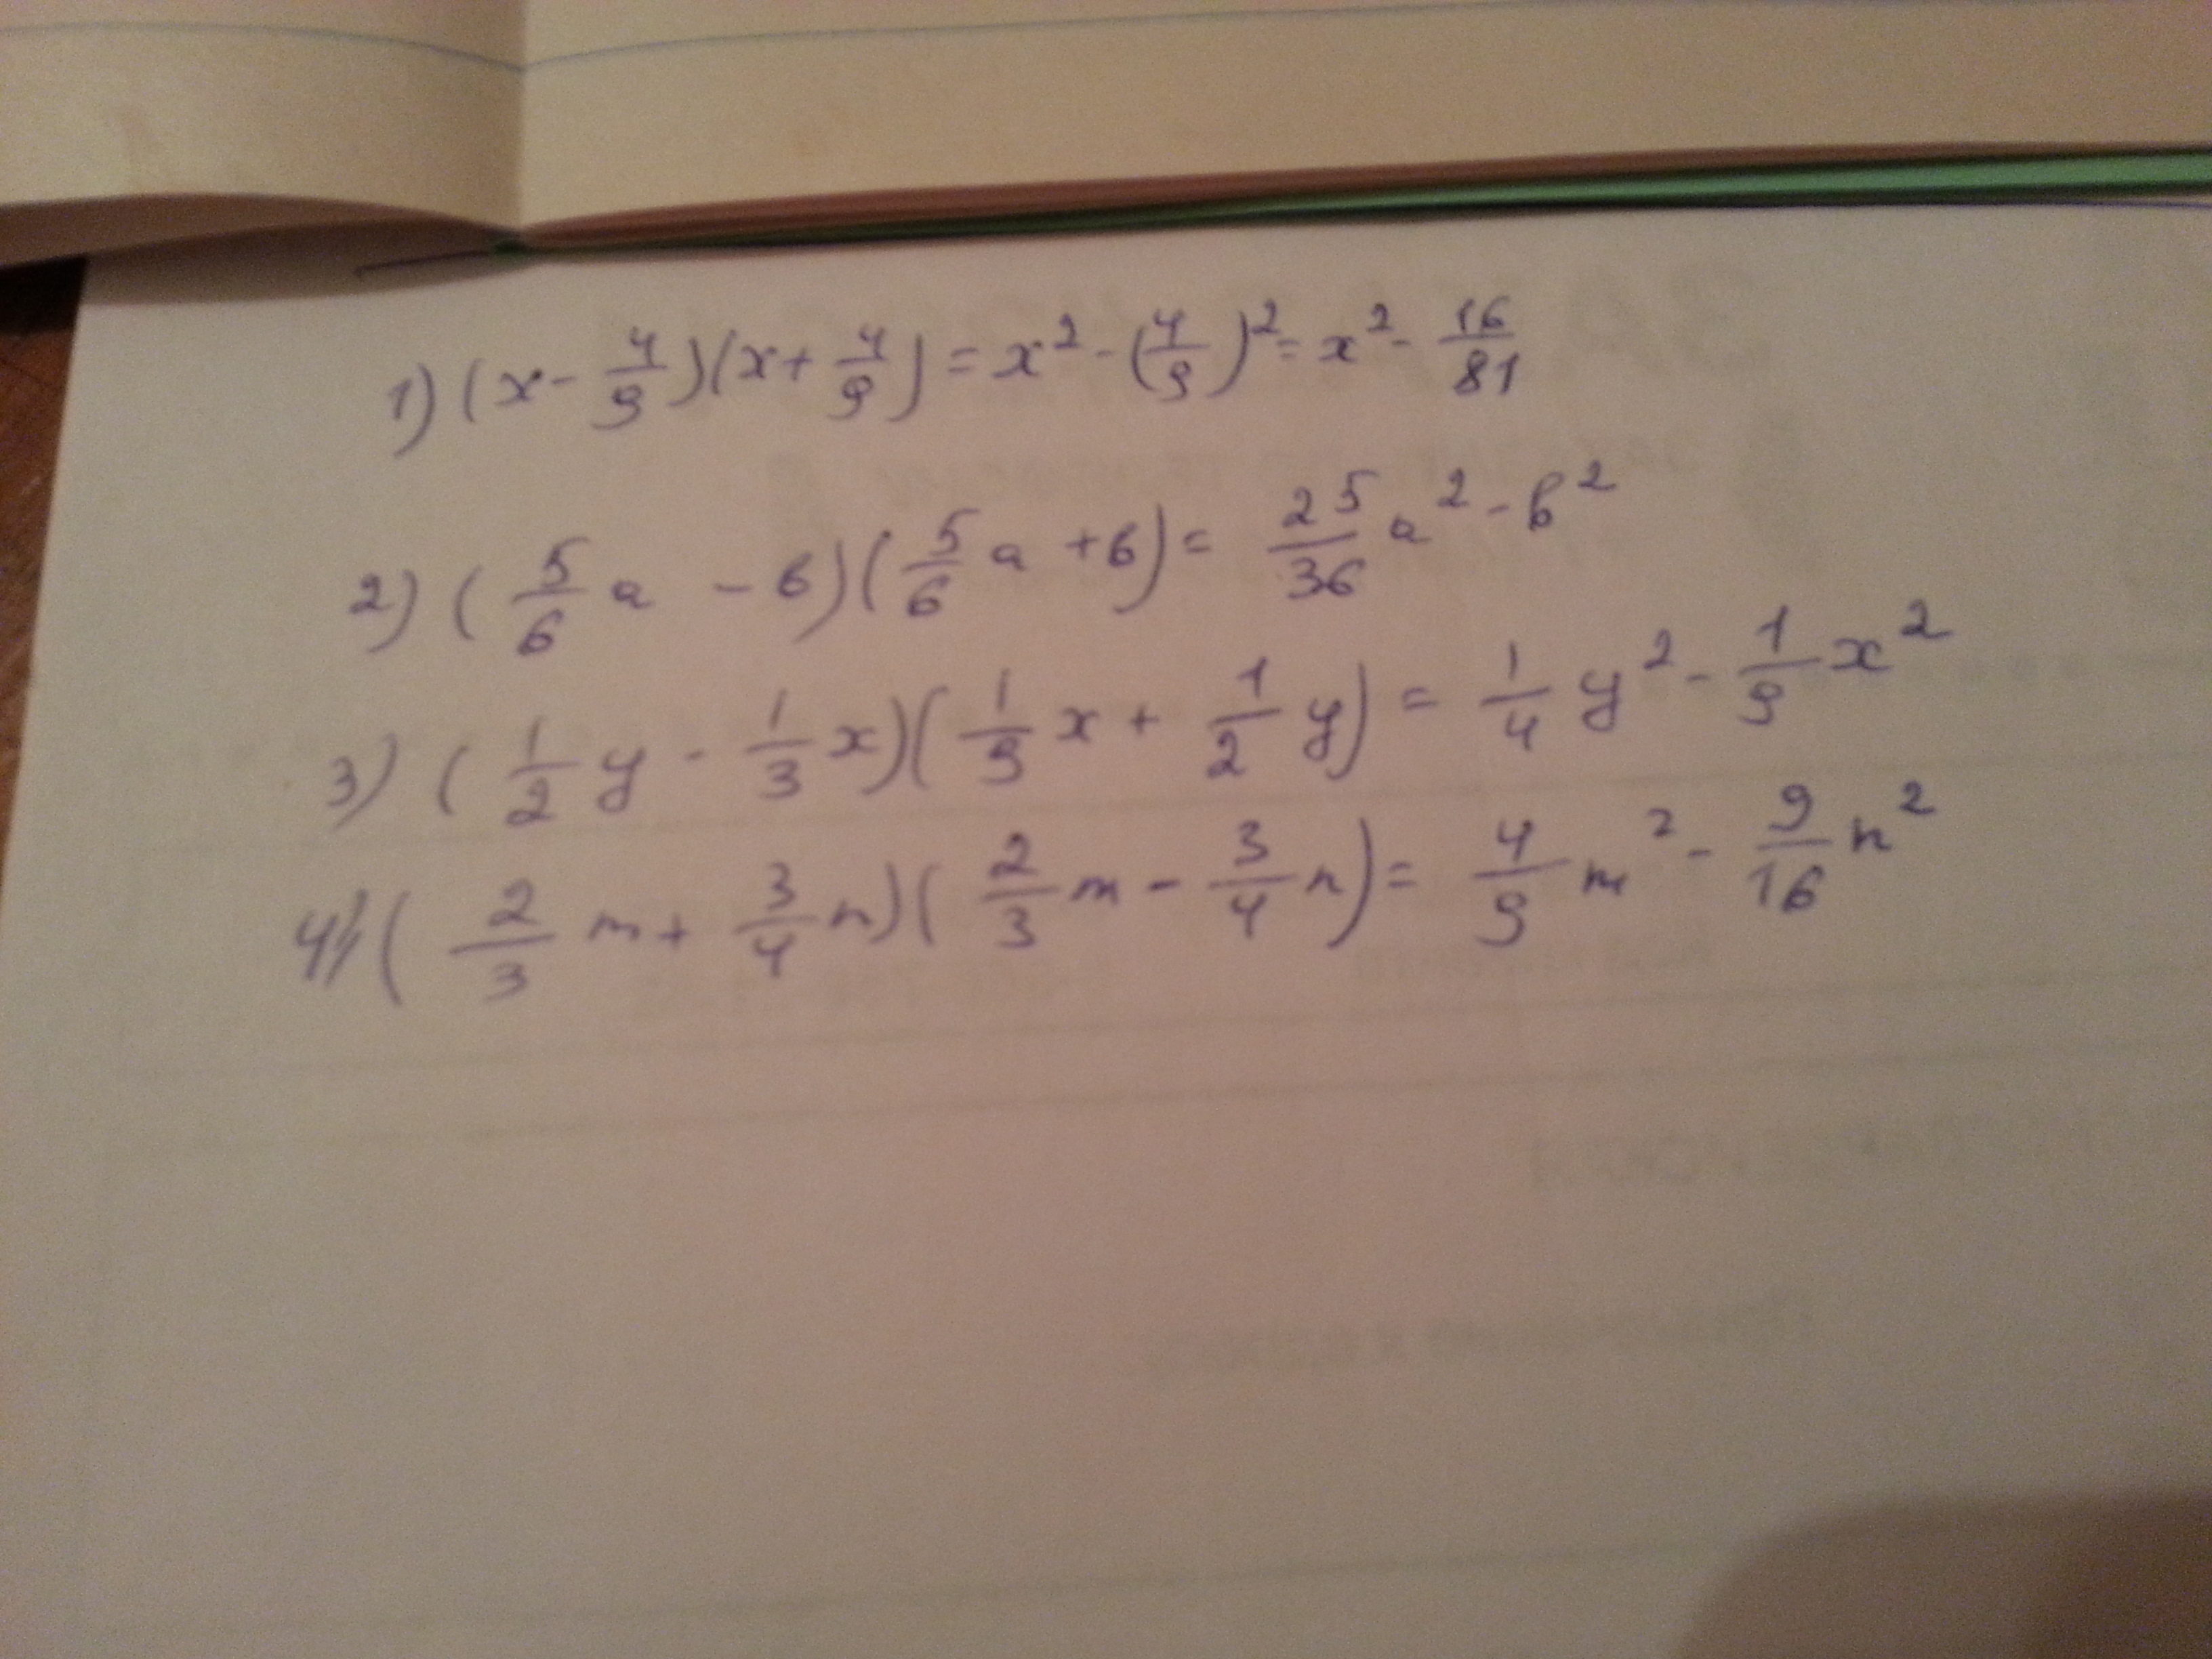 1) (x - 4/9)(x + 4/9) = x² - (4/9)² = x² - 16/81
2) (5/6 a - b)(5/6 a + b) = 25/36 a² - b²
3) (1/2 y - 1/3 x)(1/3 x + 1/2 y) = 1/4 y² - 1/9 x²
4) (2/3 m + 3/4 n)(2/3 m - 3/4 n) = 4/9 m² - 9/16 n²